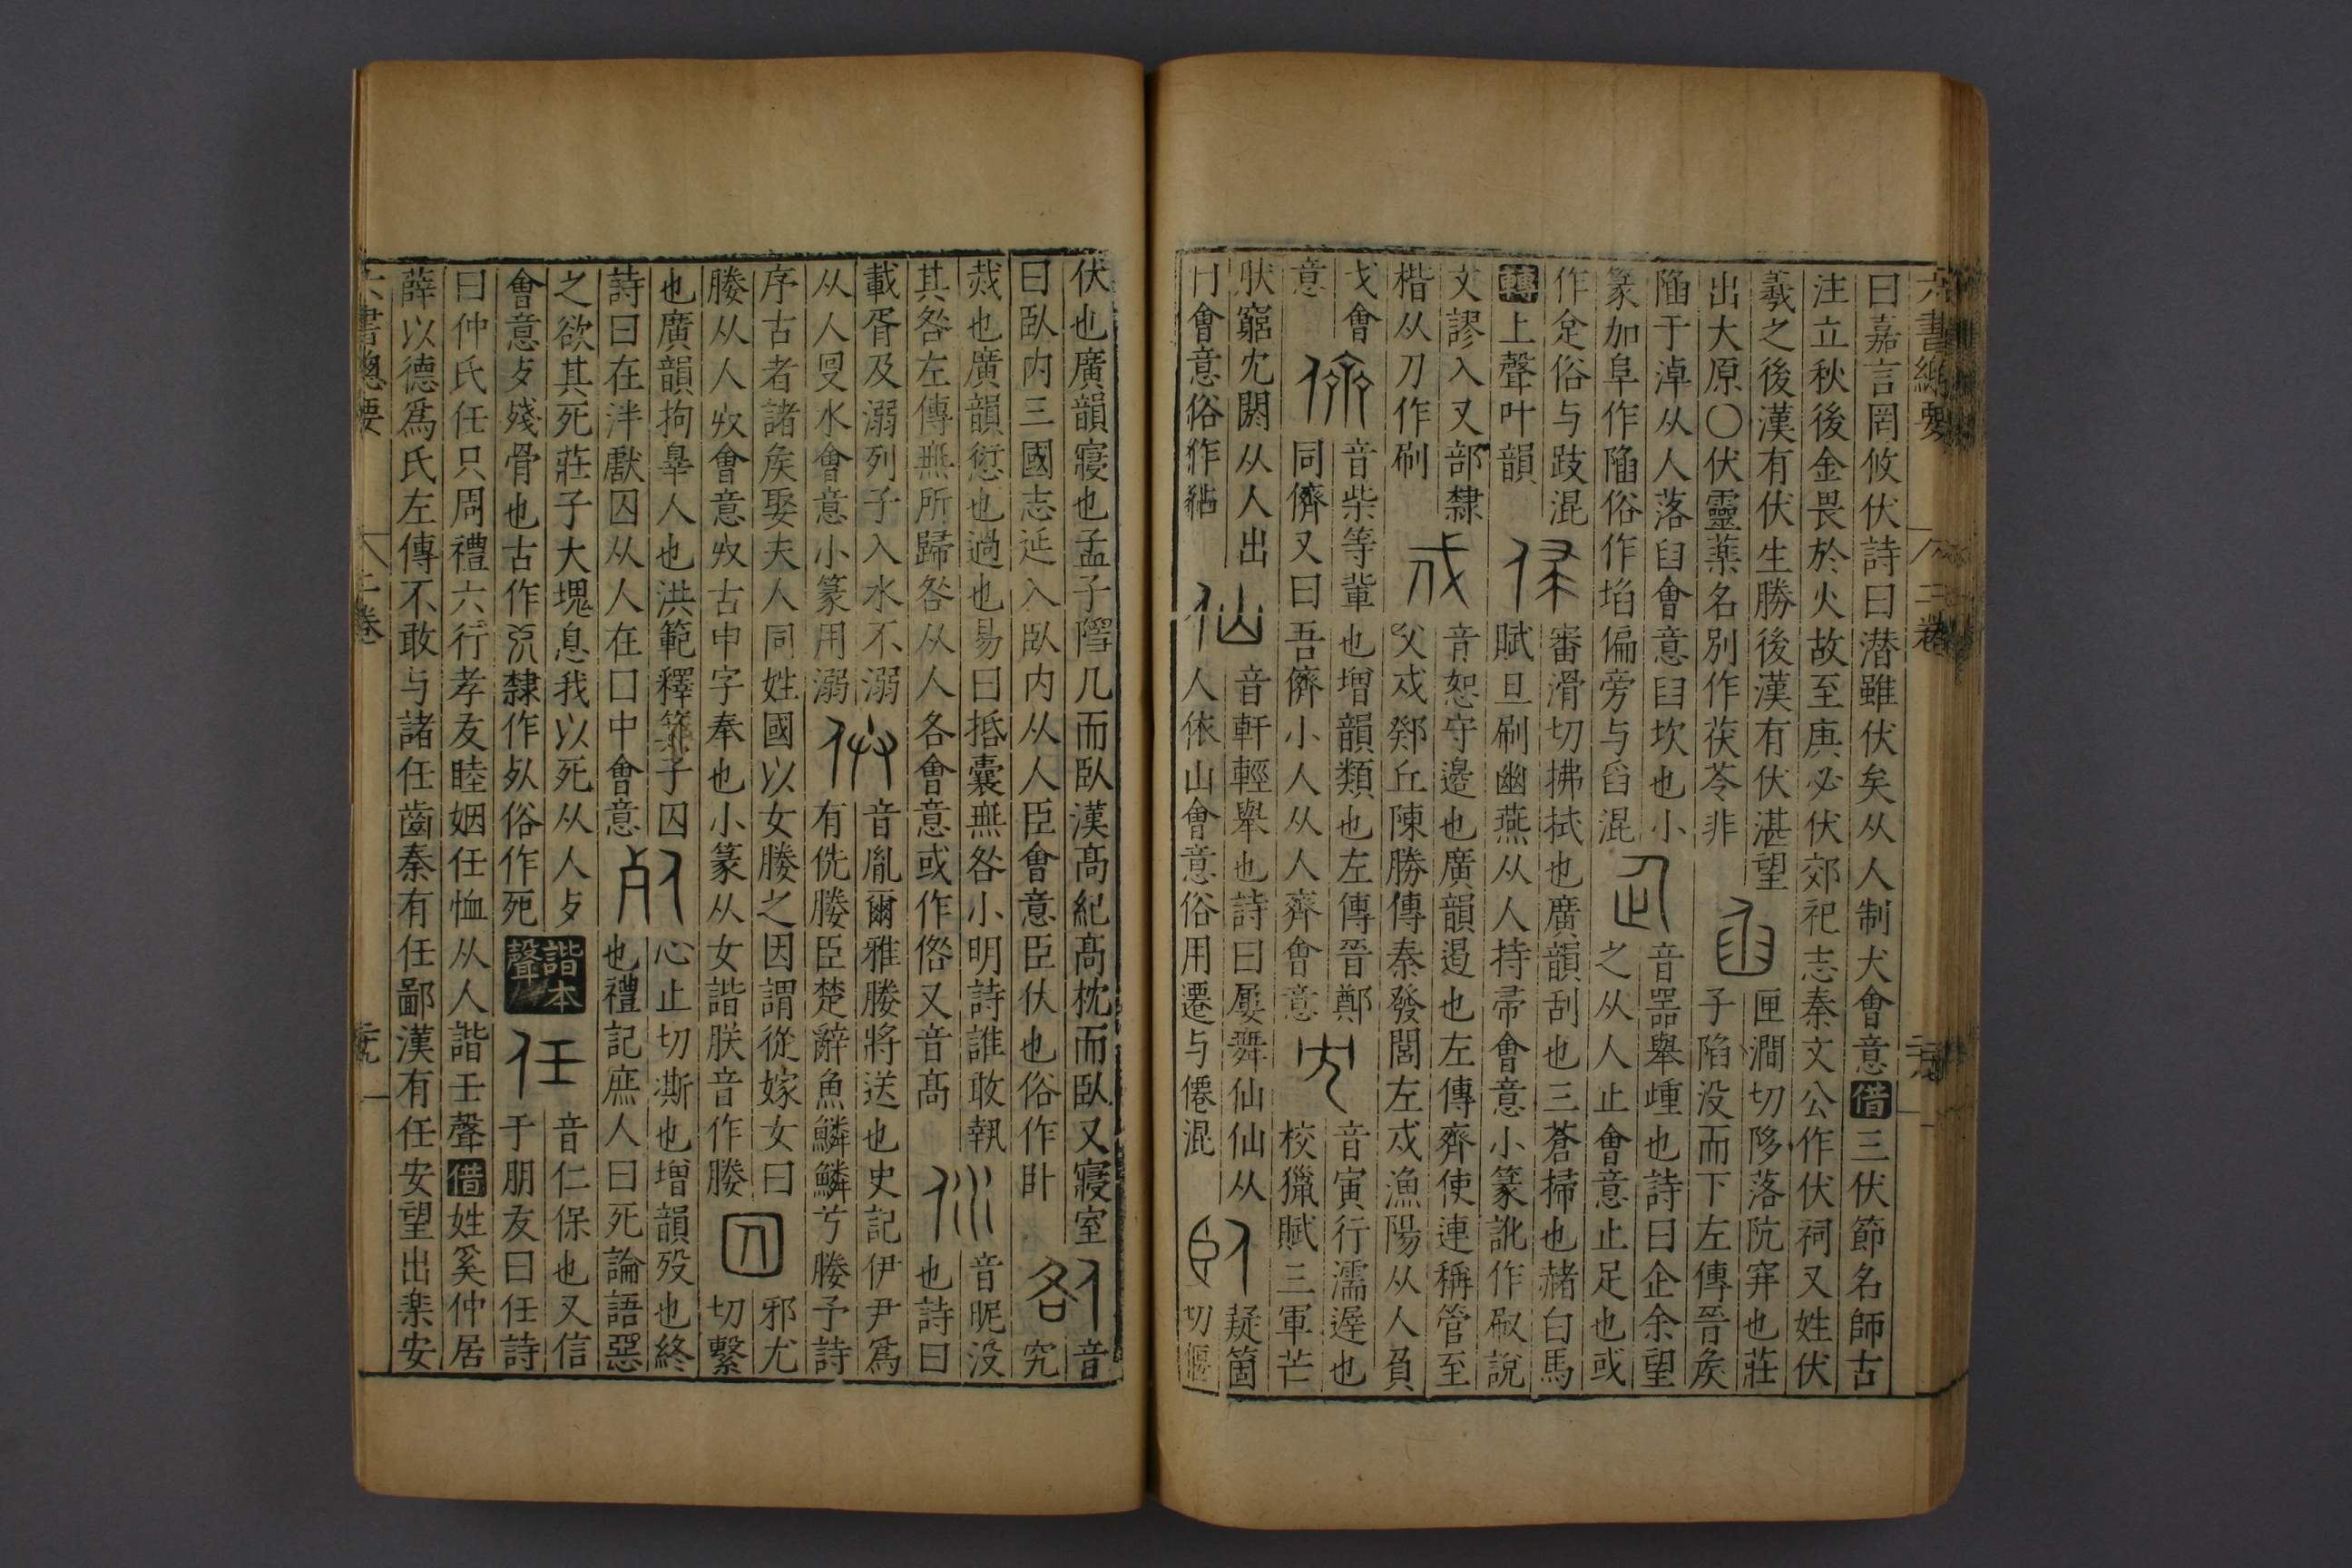 六書總要
二卷
曰嘉言罔攸伏詩曰潜雖伏矣从人制犬會意借三伏節名師古
注立秋後金畏於火故至庚必伏郊祀志秦文公作伏祠又姓伏
羲之後漢有伏生勝後漢有伏湛望
出大原○伏靈藥名別作茯苓非
匣㵎切陊落阬穽也莊
子陷没而下左傳晉矦
陷于淖从人落臼會意臼坎也小
篆加阜作陷俗作埳偏旁与舀混
音器舉踵也詩曰企余望
之从人止會意止足也或
作𠈮俗与跂混
轉上聲叶韻
審滑切拂拭也廣韻刮也三蒼掃也赭白馬
賦旦刷幽燕从人持帚會意小篆訛作㕞說
文謬入又部隸
楷从刀作刷
音恕守邊也廣韻遏也左傳齊使連稱管至
父戍郊丘陳勝傳秦發閭左戍漁陽从人負
戈會
意
音柴等輩也增韻類也左傳晉鄭
同儕又曰吾儕小人从人齊會意
音寅行濡遲也
校獵賦三軍芒
狀窮冘閼从人出
冂會意俗作
音軒輕舉也詩曰屢舞仙仙从
人依山會意俗用遷与僊混
疑箇
切偃
伏也廣韻寢也孟子隱几而臥漢高紀高枕而臥又寢室
曰臥内三國志延入臥内从人臣會意臣伏也俗作卧
音
究
烖也廣韻愆也過也易曰括囊無咎小明詩誰敢執
其咎左傳無所歸咎从人各會意或作倃又音髙
音昵没
也詩曰
載胥及溺列子入水不溺
从人㕜水會意小篆用溺
音胤爾雅媵將送也史記伊尹爲
有侁媵臣楚辭魚鱗鱗兮媵予詩
序古者諸矦娶夫人同姓國以女媵之因謂從嫁女曰
媵从人㕠會意㕠古申字奉也小篆从女諧朕音作媵
邪尤
切繫
也廣韻拘辠人也洪範釋箕子囚
詩曰在泮獻囚从人在囗中會意
心止切澌也增韻歿也終
也禮記庶人曰死論語惡
之欲其死莊子大塊息我以死从人歹
會意歹殘骨也古作𣦸隸作𣦹俗作死
諧本聲
音仁保也又信
于朋友曰任詩
曰仲氏任只周禮六行孝友睦姻任恤从人諧壬聲借姓奚仲居
薛以德爲氏左傳不敢与諸任齒秦有任鄙漢有任安望出樂安
六書總要
二卷